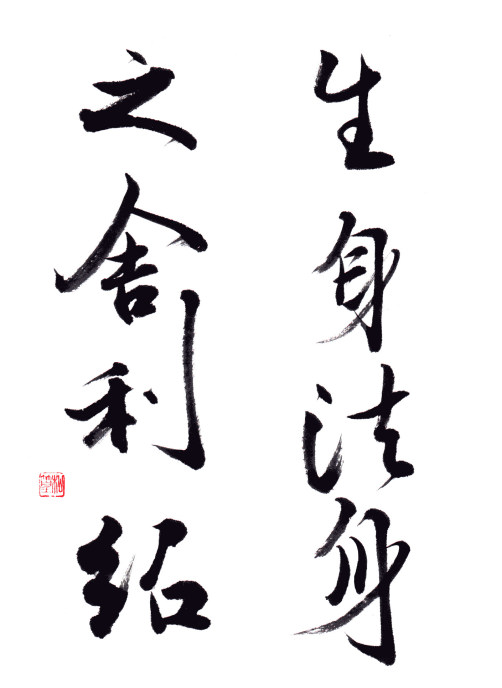 生身法身
之舍利紹